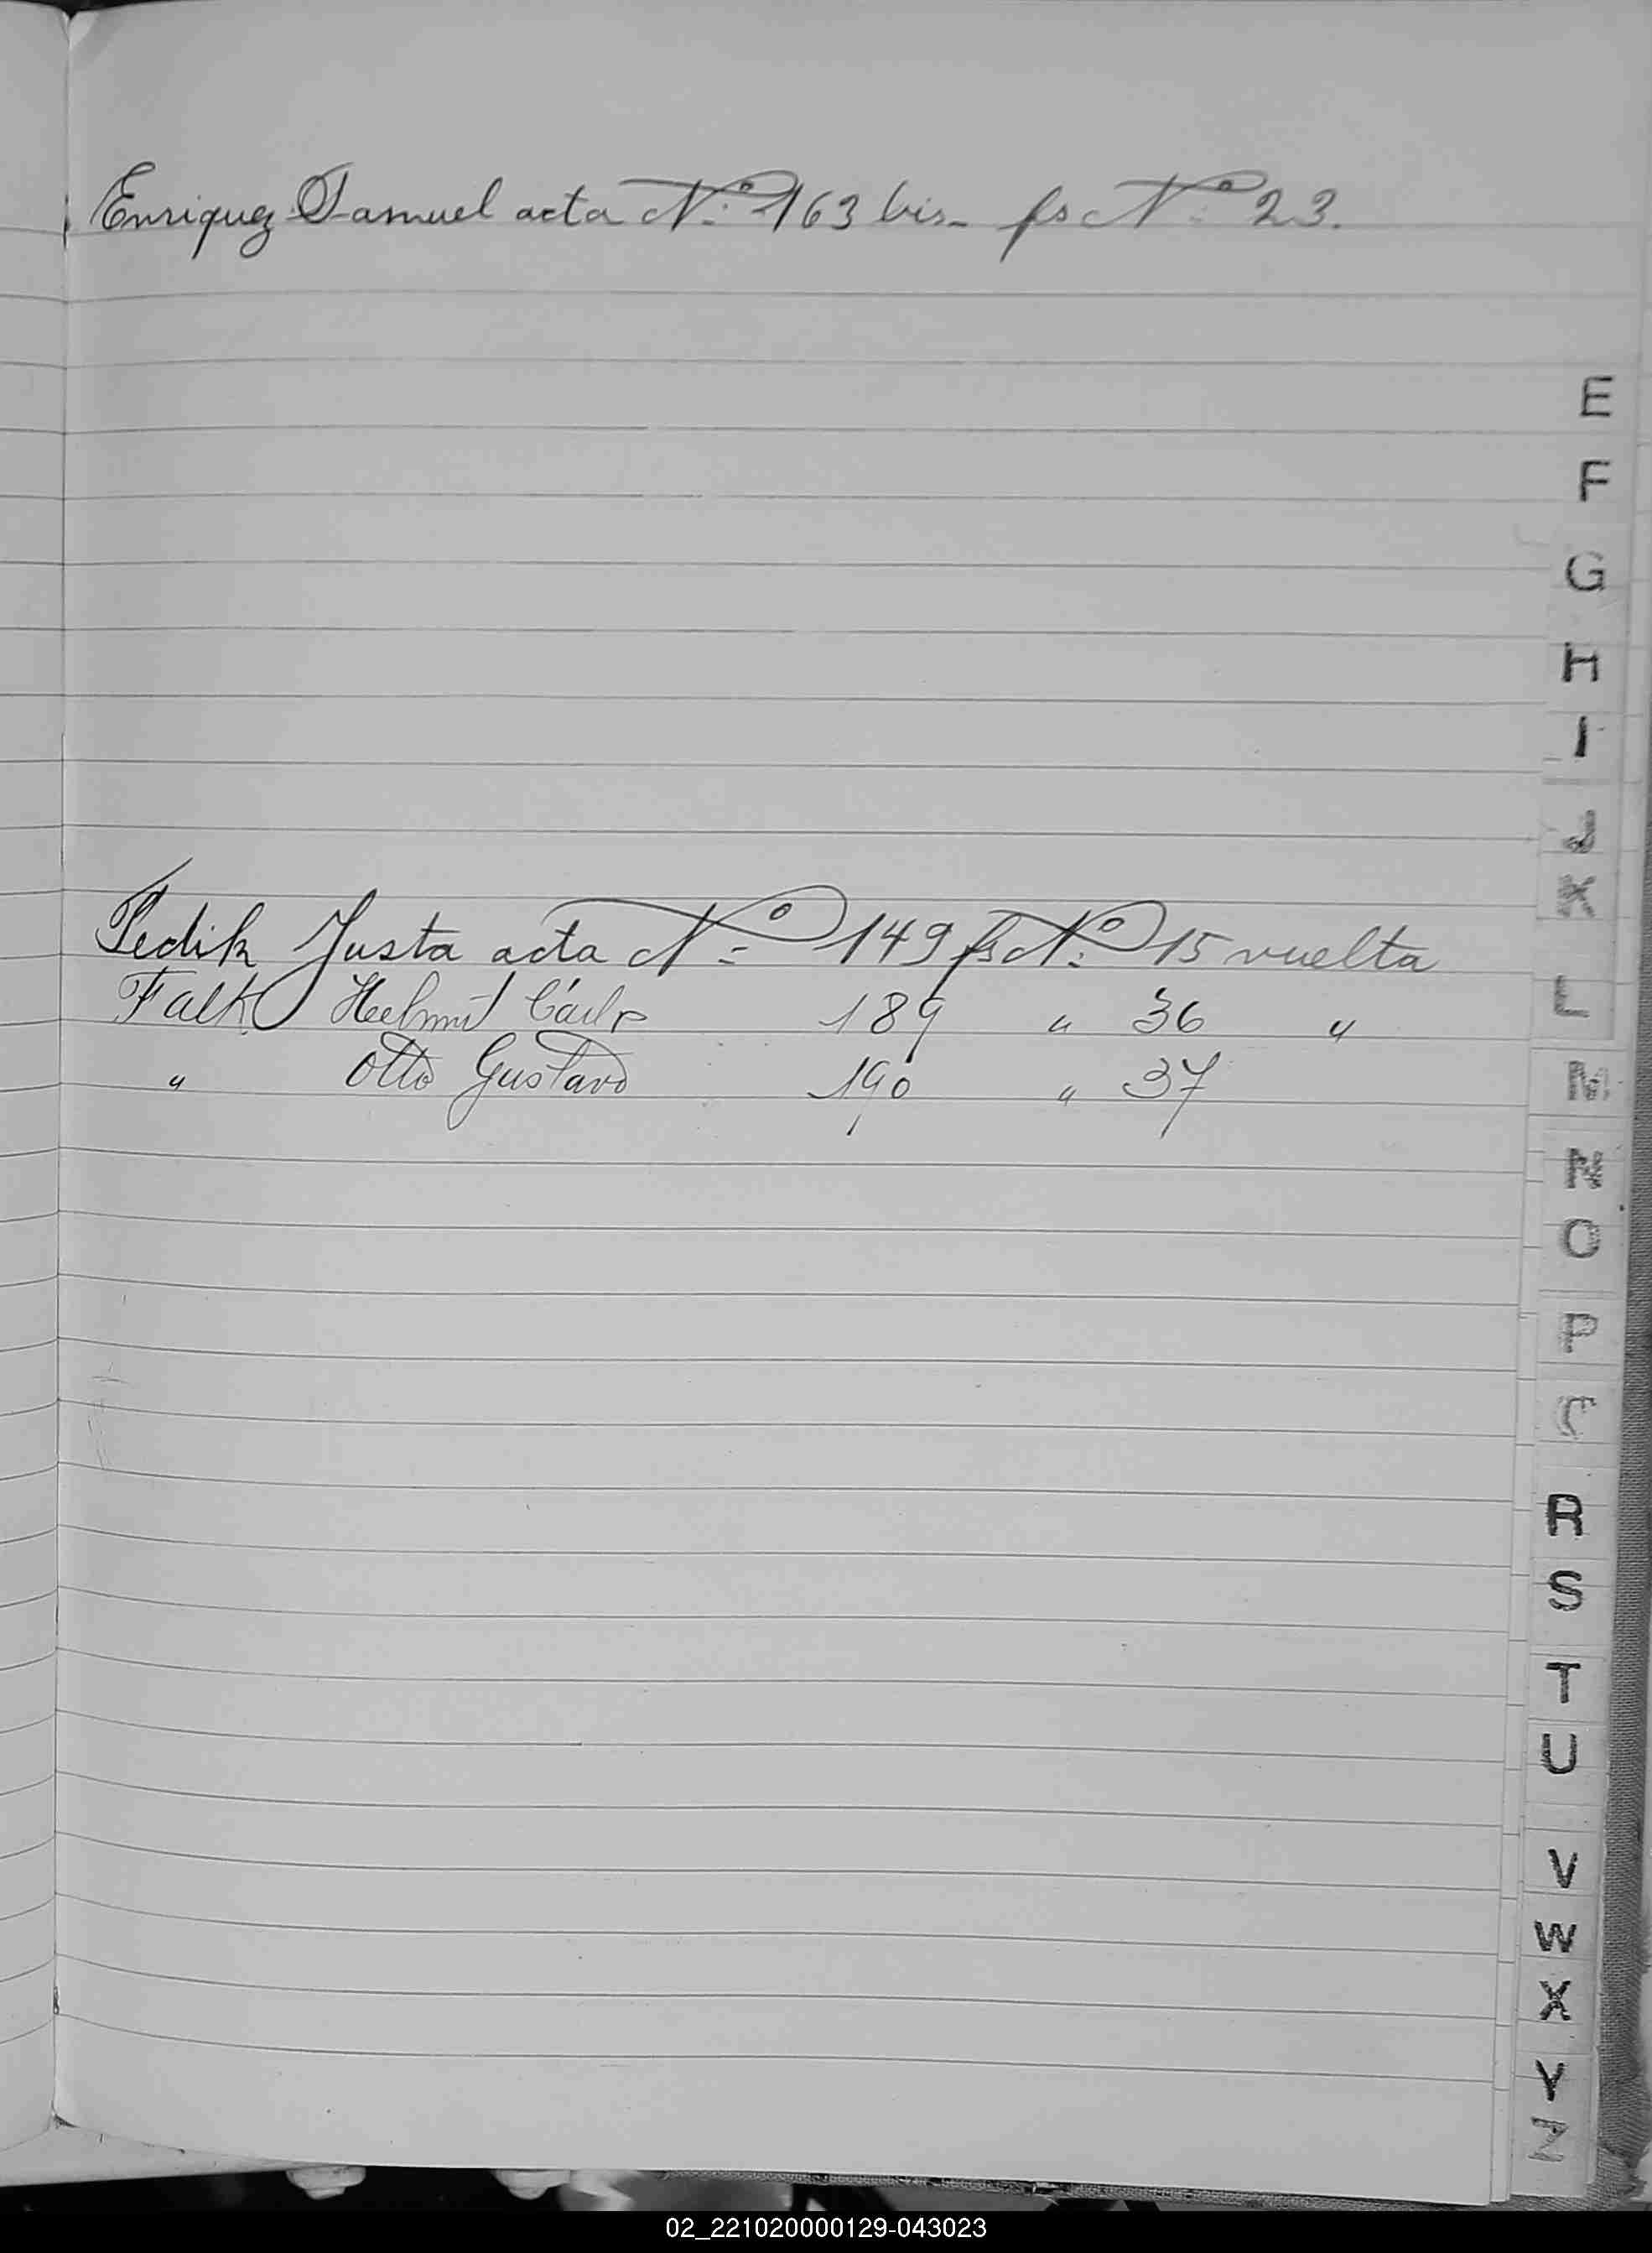 Enriquez Samuel acta Nº 163 bis_ fs Nº 23.
Fedik Justa acta Nº 149 fs Nº 15 vuelta
Falk Helmut Cárlo 189 " 36 "
" Otto Gustavo 190 " 37
E
F
G
H
I
J
K
L
M
N
O
P
R
S
T
U
V
W
X
Y
Z
02_221020000129-043023